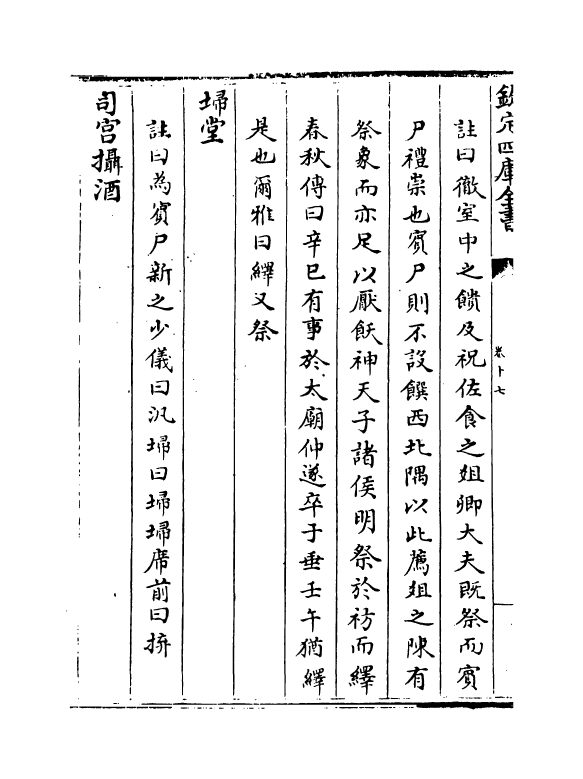 欽定四庫全書
卷十七
註曰徹室中之饋及祝佐食之俎卿大夫既祭而賓
尸禮崇也賓尸則不設饌西北隅以此薦俎之陳有
祭象而亦足以厭飫神天子諸侯明祭於祊而繹
春秋傳曰辛巳有事於太廟仲遂卒于垂壬午猶繹
是也爾雅曰繹又祭
埽堂
註曰為賓尸新之少儀曰汎埽曰埽埽席前曰拚
司宮攝酒